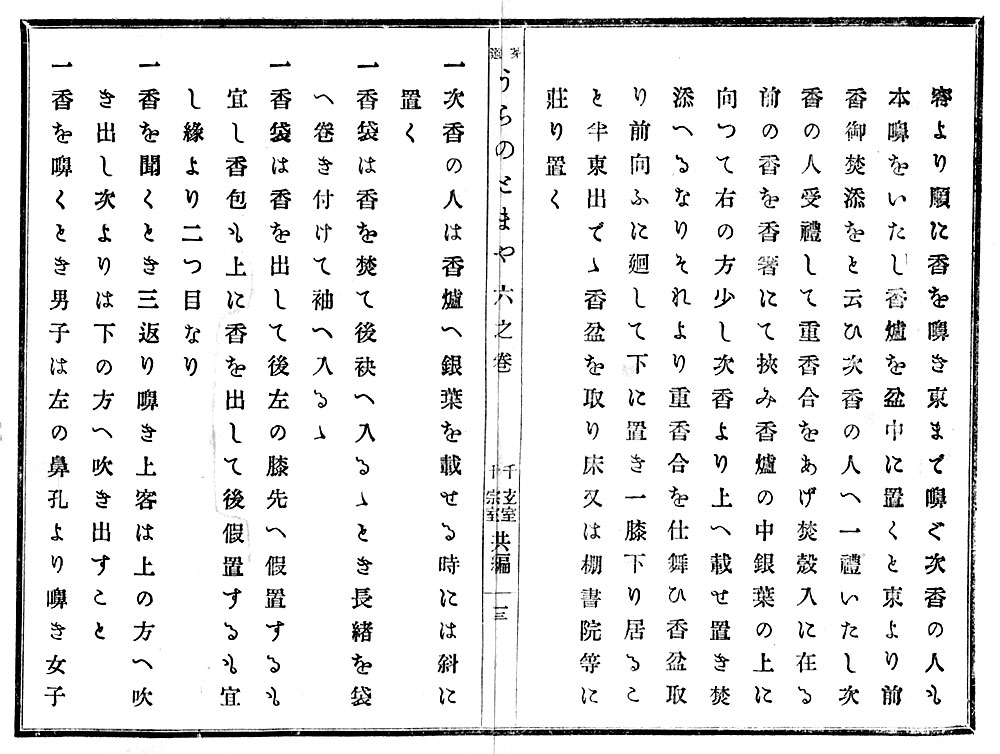 客より順に香を嗅き東まで嗅ぐ次香の人も
本嗅をいたし香爐を盆中に置くと東より前
香御焚添をと云ひ次香の人へ一禮いたし次
香の人受禮して重香合をあげ焚殻入に在る
前の香を香箸にて挾み香爐の中銀葉の上に
向つて右の方少し次香より上へ載せ置き焚
添へるなりそれより重香合を仕舞ひ香盆取
り前向ふに廻して下に置き一膝下り居るこ
と半東出でゝ香盆を取り床又は棚書院等に
莊り置く
うらのとまや六之卷
千玄室
千宗室
共編
三
一次香の人は香爐へ銀葉を載せる時には斜に
置く
一香袋は香を焚て後袂へ入るゝとき長緒を袋
へ卷き付けて袖へ入るゝ
一香袋は香を出して後左の膝先へ假置するも
宜し香包も上に香を出して後假置するも宜
し緣より二つ目なり
一香を聞くとき三返り嗅き上客は上の方へ吹
き出し次よりは下の方へ吹き出すこと
一香を嗅くとき男子は左の鼻孔より嗅き女子